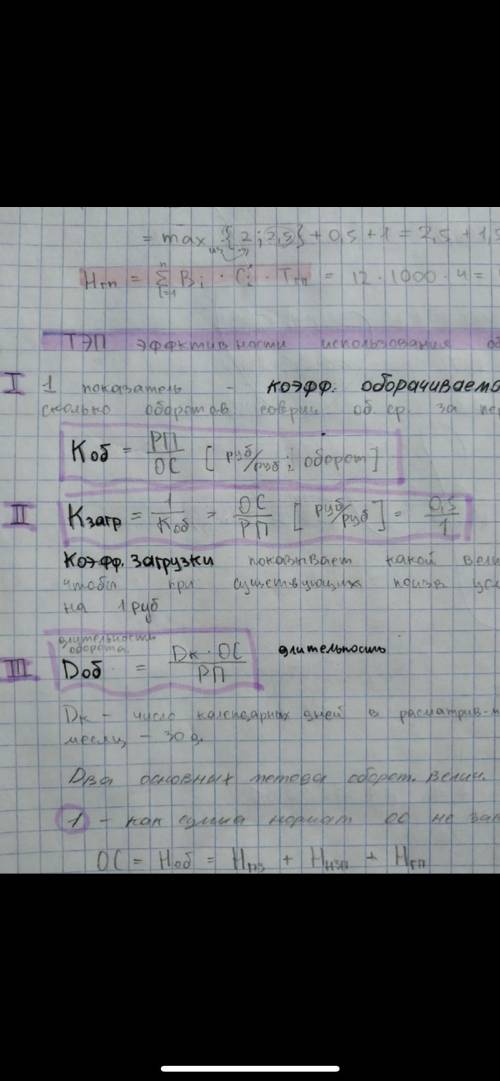 = max {2; 2,5} + 0,5 + 1 = 2,5 + 1,5
Нгп = Σ Bi · Ci · Tгп = 12 · 1000 · 4 =
n
i=1
ТЭП эффективности использования об
I 1 показатель - коэфф. оборачиваемо
сколько оборотов соверш об. ср. за пер
Коб = РП/ОС [руб/руб; оборот]
II Кзагр = 1/Коб = ОС/РП [руб/руб] = 0,5/1
Коэфф. загрузки показывает какой вели
чтобы при существующих
на 1 руб
длительность
оборота
III Dоб = Dк · ОС/РП длительность
Dк - число календарных дней в расматрив-м
месяц - 30 д.
Два основных метода оборот. велич.
1 - как сумма нормат ос не зав
ОС = Ноб = Нпз + Ннзп + Нгп